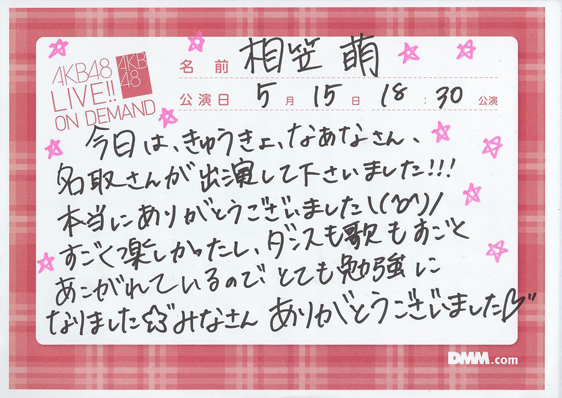 AKB48
LIVE!!
ON DEMAND
AKB
48
名前 相笠萌
公演日 5月15日 18:30 公演
今日は、きゅうきょ、なあなさん、
名取さんが出演して下さいました!!!
本当にありがとうございました\(^o^)/
すごく楽しかったし、ダンスも歌もすごく
あこがれているのでとても勉強に
なりました☆彡みなさんありがとうございました♡"
DMM.com